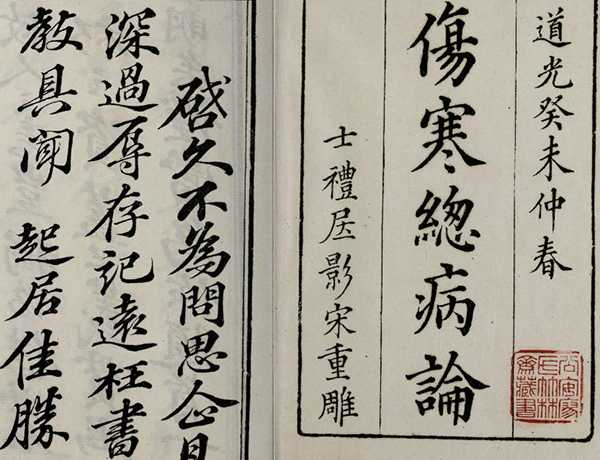 道光癸未仲春
傷寒緫病論
士禮居影宋重雕
啟久不為問思企日
深過辱存記遠枉書
教具聞 起居佳勝